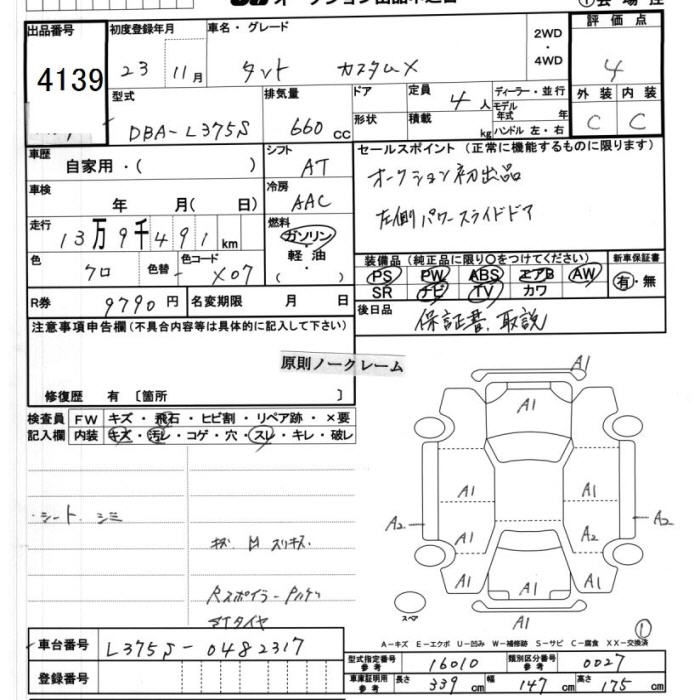 出品番号 初度登録年月 車名・グレード 2WD ・ 4WD 評価点
4139 23 11月 タント カスタムX 4
型式 排気量 ドア 定員 ディーラー・並行 外装 内装
DBA-L375S 660cc 4人 モデル年式 年 C C
形状 積載 kg ハンドル 左・右
車歴 自家用・( ) シフト AT セールスポイント (正常に機能するものに限ります)
車検 年 月( 日) 冷房 AAC オークション初出品
走行 13万9千491km 燃料 ガソリン・軽油・( ) 左側パワースライドドア
色 クロ 色替 - 色コード X07 装備品 (純正品に限り○をつけてください) 新車保証書
PS PW ABS エアB AW 有・無
SR ナビ TV カワ
R券 9790円 名変期限 月 日 後日品 保証書、取説
注意事項申告欄(不具合内容等は具体的に記入して下さい)
原則ノークレーム
修復歴 有 〔箇所 〕
検査員 FW キズ・飛石・ヒビ割・リペア跡・×要
記入欄 内装 キズ・汚レ・コゲ・穴・スレ・キレ・破レ
A1
A1
A1 A1
A2 A1 A2 A2
A1 A1 A1
A1
・シート、シミ
キズ 凹 スリキズ
Rスポイラー
スペア
①
A-キズ E-エクボ U-凹み W-補修跡 S-サビ C-腐食 XX-交換済
車台番号 L375S-0482317
型式指定番号 参考 16010 類別区分番号 参考 0027
登録番号 車庫証明用 参考 長さ 339cm 幅 147cm 高さ 175cm